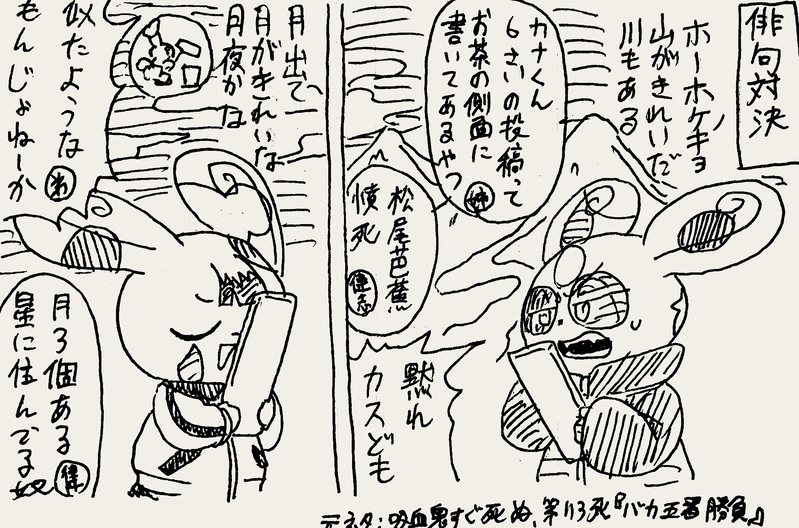 俳句対決
ホーホケキョ
山がきれいだ
川もある
カナくん
6さいの投稿って
お茶の側面に
書いてあるやつ
松尾芭蕉
憤死
黙れ
カスども
月出で、
月がきれいな
月夜かな
似たような
もんじゃねーか
月3個ある
星に住んでる奴
元ネタ:吸血鬼すぐ死ぬ、第113死『バカ五番勝負』